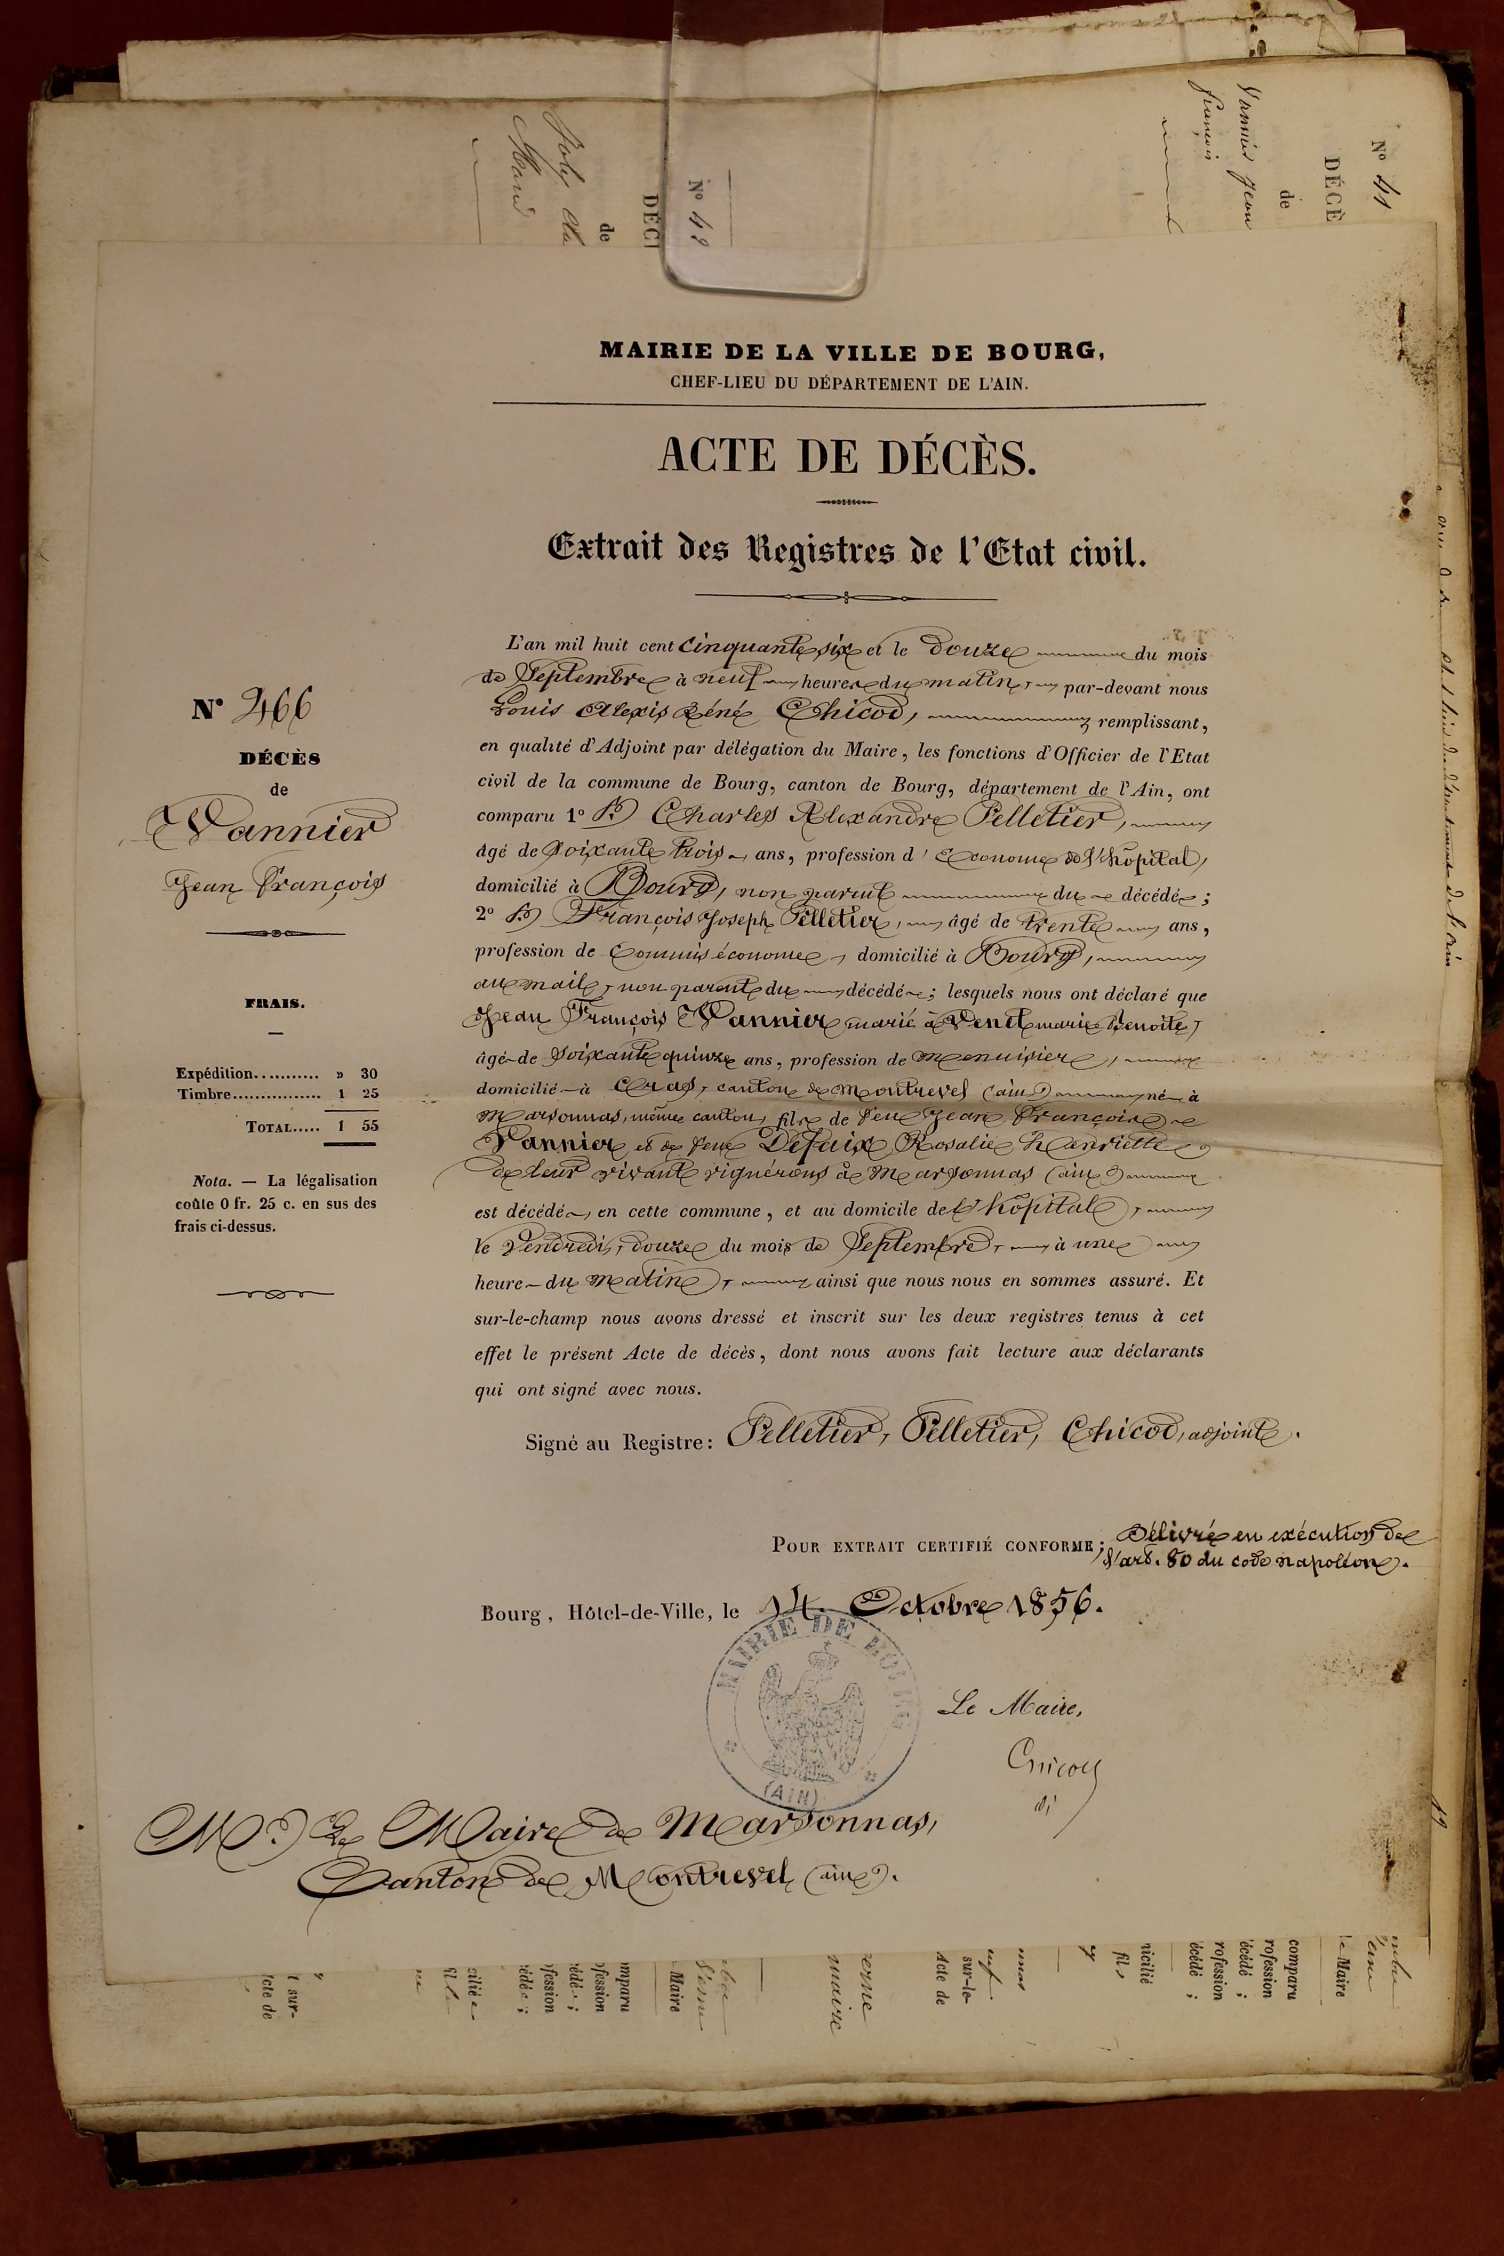 MAIRIE DE LA VILLE DE BOURG,
CHEF-LIEU DU DÉPARTEMENT DE L'AIN.
ACTE DE DÉCÈS.
Extrait des Registres de l'Etat civil.
N° 466
DÉCÈS
de
Vannier
Jean François
FRAIS.
Expédition........... » 30
Timbre................ 1 25
TOTAL..... 1 55
Nota. — La légalisation
coûte 0 fr. 25 c. en sus des
frais ci-dessus.
L'an mil huit cent cinquante six et le douze du mois
de Septembre à neuf heures du matin, par-devant nous
Louis Alexis Réné Chicod, remplissant,
en qualité d'Adjoint par délégation du Maire, les fonctions d'Officier de l'Etat
civil de la commune de Bourg, canton de Bourg, département de l'Ain, ont
comparu 1° Charles Alexandre Pelletier,
âgé de soixante trois ans, profession d'économe de l'hôpital,
domicilié à Bourg, non parent du décédé ;
2° François Joseph Pelletier, âgé de trente ans,
profession de Commis économe, domicilié à Bourg,
au mail, non parent du décédé ; lesquels nous ont déclaré que
Jean François Vannier marié à Venet marie Benoite,
âgé de soixante quinze ans, profession de menuisier,
domicilié à Cras, canton de Montrevel (ain) né à
Marsonnas, même canton, fils de feu Jean François
Vannier et de feue Defaix Rosalie henriette
de leur vivant vignérons à Marsonnas (ain)
est décédé, en cette commune, et au domicile de l'hôpital,
le Vendredi, douze du mois de Septembre, à une
heure du matin, ainsi que nous nous en sommes assuré. Et
sur-le-champ nous avons dressé et inscrit sur les deux registres tenus à cet
effet le présent Acte de décès, dont nous avons fait lecture aux déclarants
qui ont signé avec nous.
Signé au Registre : Pelletier, Pelletier, Chicod, adjoint.
POUR EXTRAIT CERTIFIÉ CONFORME ; Délivré en exécution de
l'art. 80 du code napoléon.
Bourg, Hôtel-de-Ville, le 14 Octobre 1856.
MAIRIE DE BOURG
(AIN)
Le Maire,
Chicod
Mr Le Maire de Marsonnas,
Canton de Montrevel (ain).
N° 41
DÉCÈ
de
Vannier Jean
François
N° 42
DÉCI
de
Joly
Marie